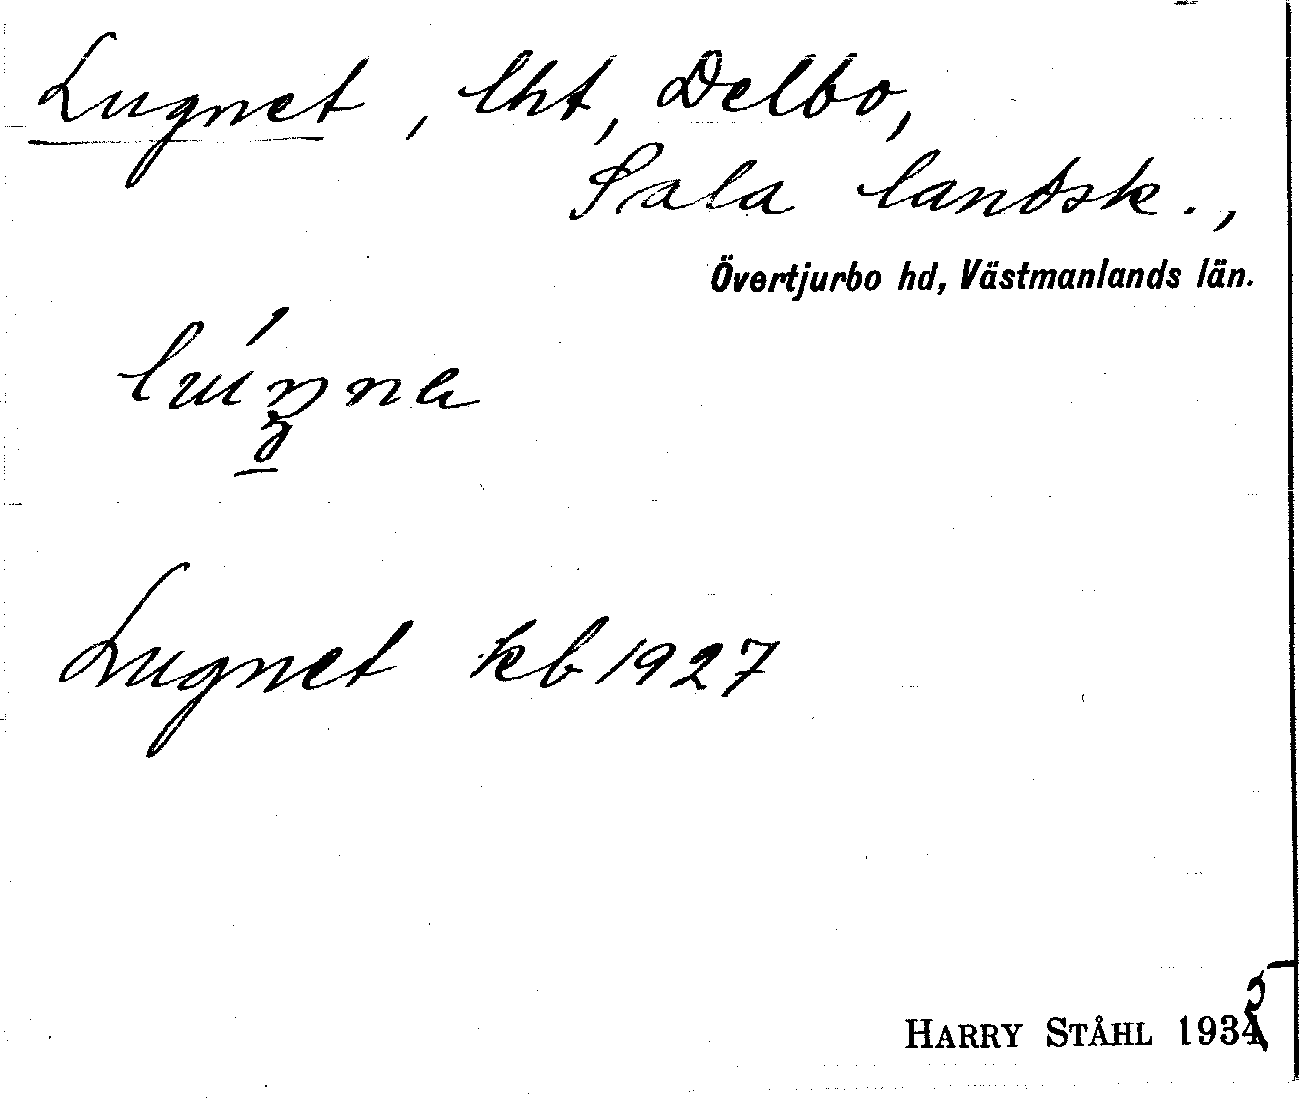 Lugnet, lht, Delbo,
Sala landsk.,
Övertjurbo hd, Västmanlands län.
Lugnet kb 1927
HARRY STÅHL 1935